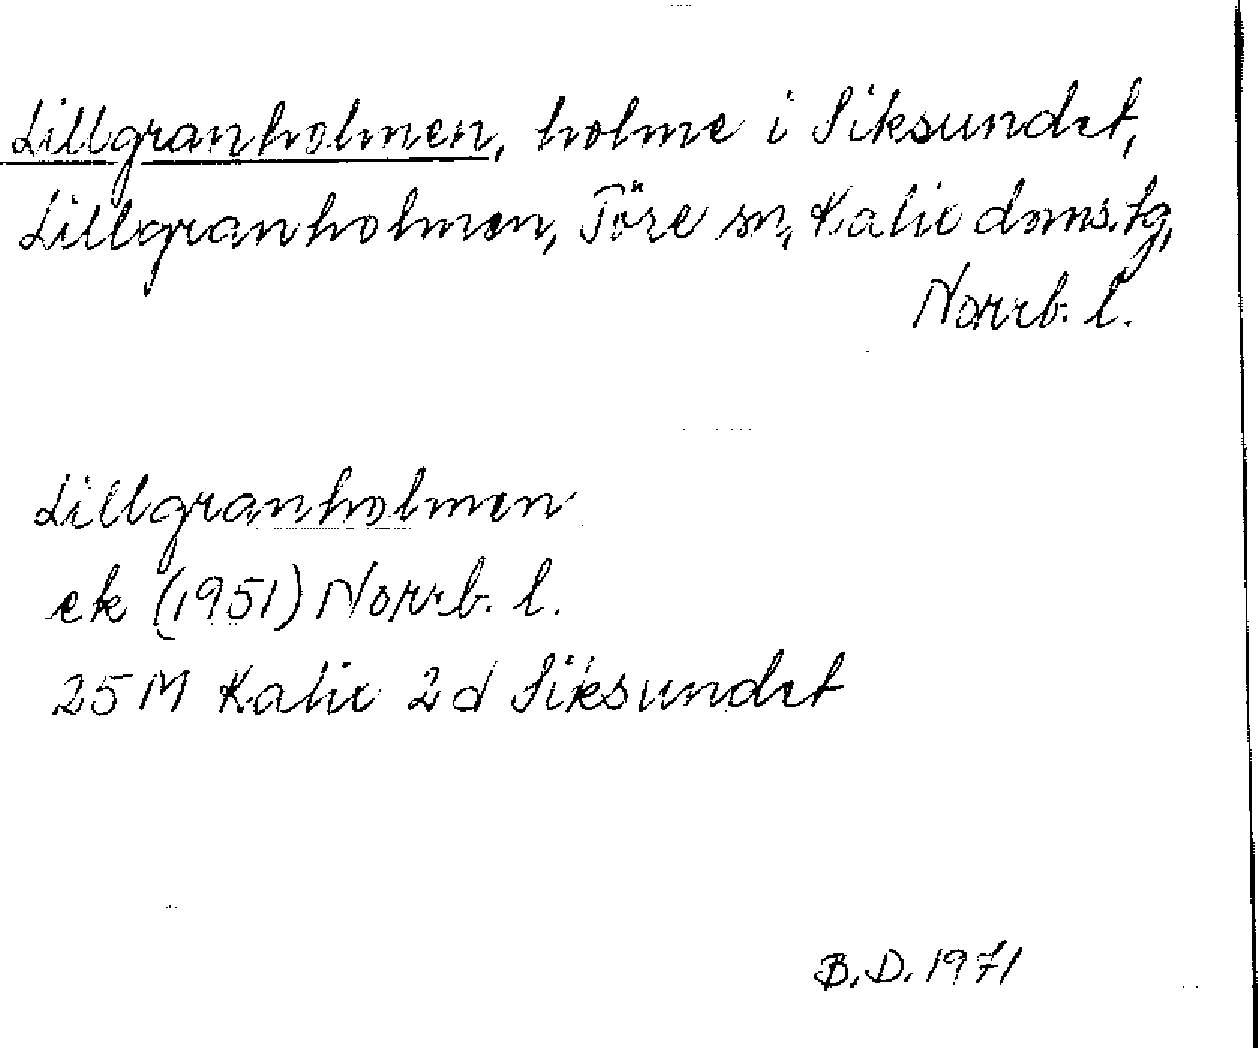 Lillgranholmen, holme i Siksundet,
Lillgranholmen, Töre sn, Kalix doms.tg,
Norrb. l.
Lillgranholmen
ek (1951) Norrb. l.
25 M Kalix 2 d Siksundet
B.D. 1971